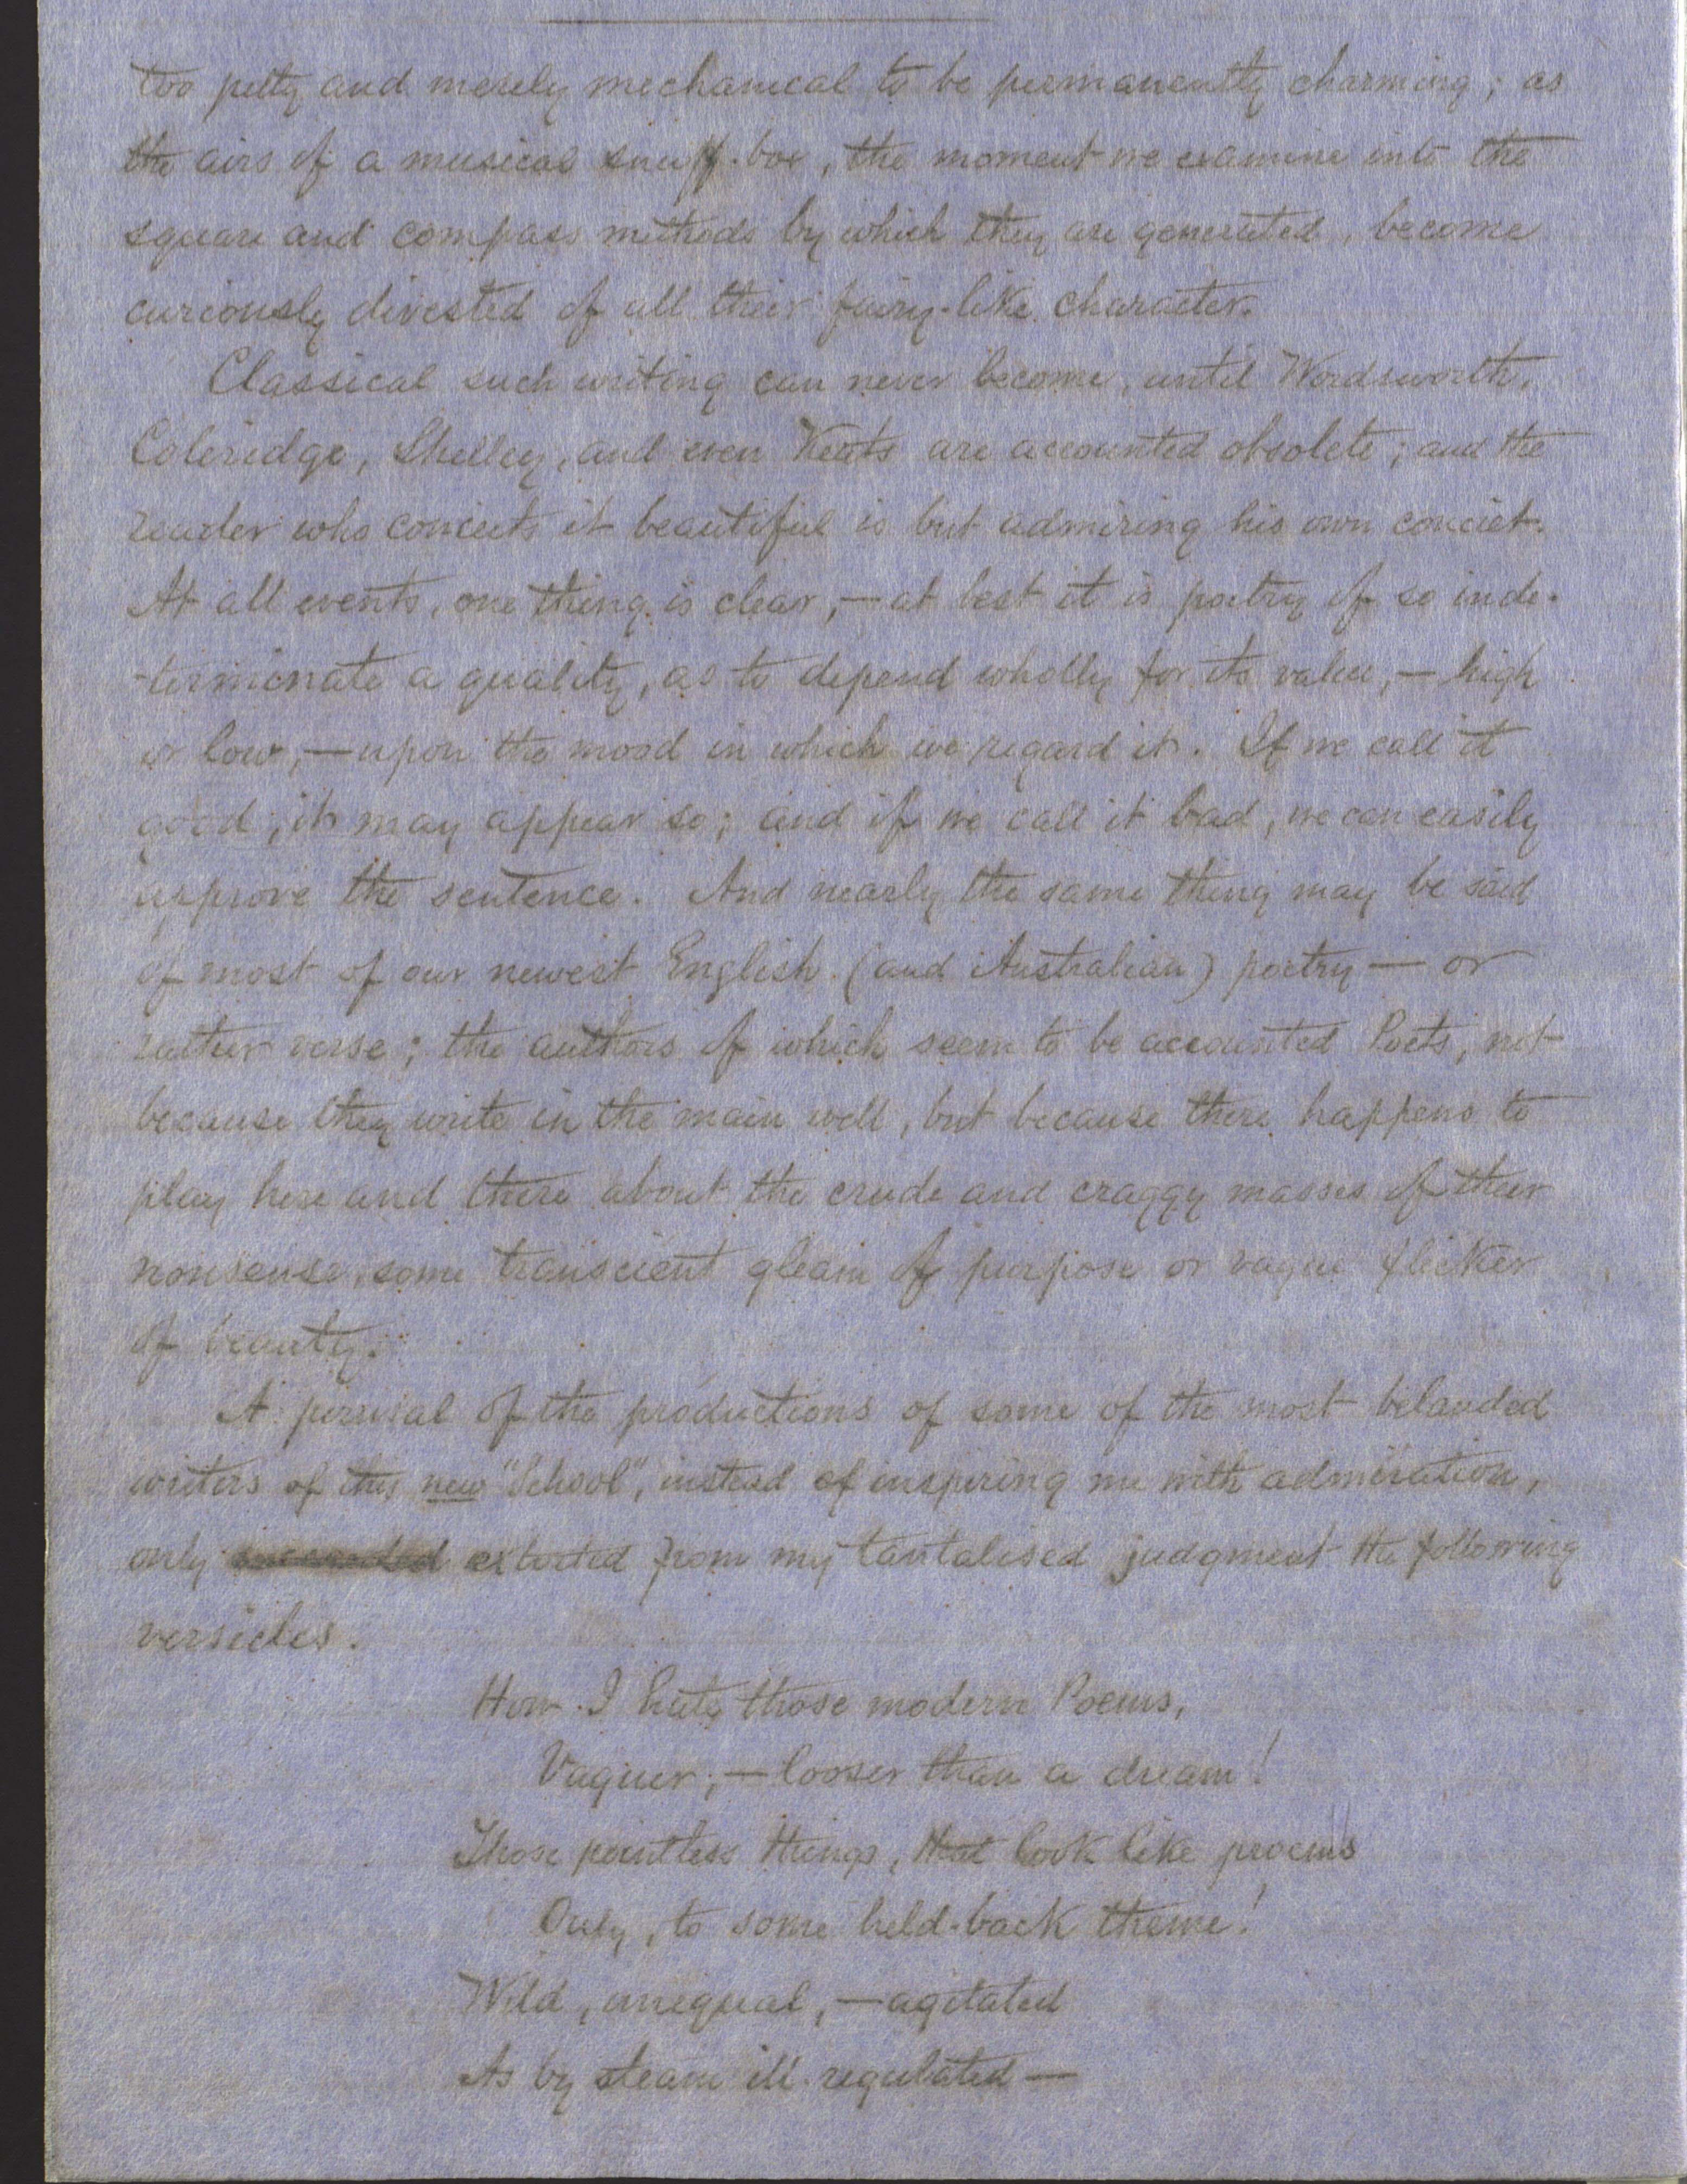 too petty and merely mechanical to be permanently charming; as
the airs of a musical snuff-box, the moment we examine into the
square and compass methods by which they are generated, become
curiously divested of all their fairy-like character.
Classical such writing can never become, until Wordsworth,
Coleridge, Shelley, and even Keats are accounted obsolete; and the
reader who conceits it beautiful is but admiring his own conceit.
At all events, one thing is clear,—at best it is poetry of so inde-
-terminate a quality, as to depend wholly for its value,—high
or low,—upon the mood in which we regard it. If we call it
good, it may appear so; and if we call it bad, we can easily
approve the sentence. And nearly the same thing may be said
of most of our newest English (and Australian) poetry—or
rather verse; the authors of which seem to be accounted Poets, not
because they write in the main well, but because there happens to
play here and there about the crude and craggy masses of their
nonsense, some transcient gleam of purpose or vague flicker
of beauty.
A perusal of the productions of some of the most belauded
writers of this new "School", instead of inspiring me with admiration,
only extorted from my tantalised judgment the following
versicles.
How I hate those modern Poems,
Vaguer,—looser than a dream!
Those pointless things, that look like proems
Only, to some held-back theme!
Wild, unequal,—agitated
As by steam ill-regulated—